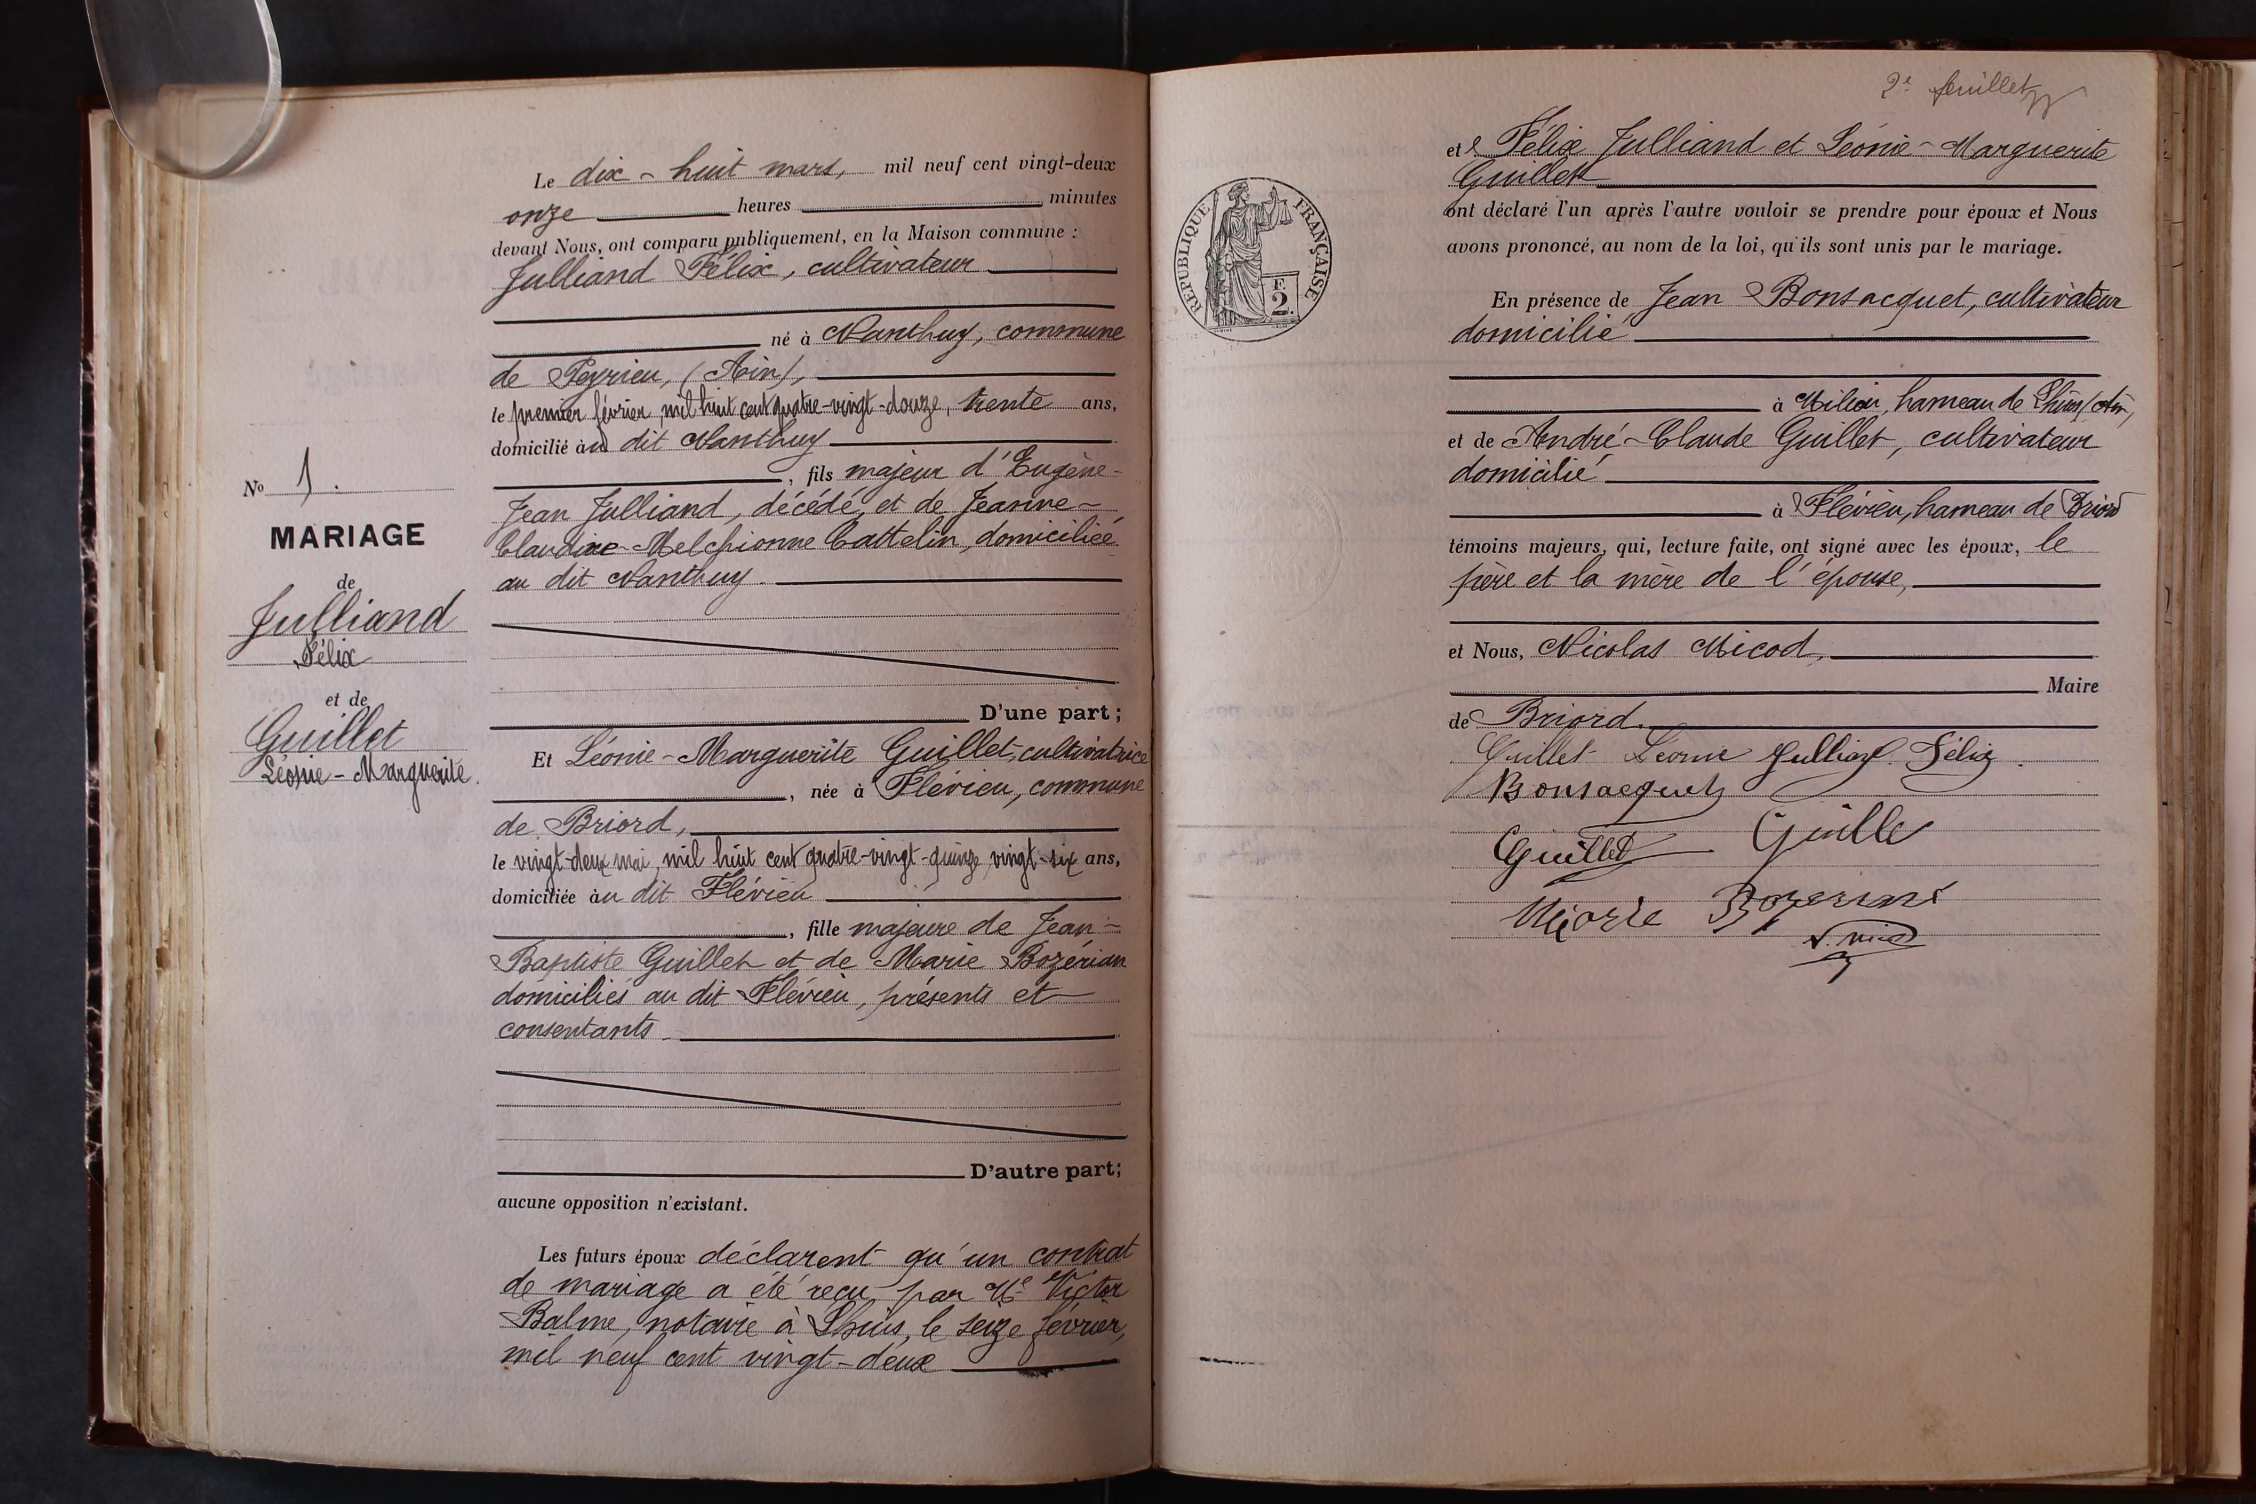 Le dix-huit mars, mil neuf cent vingt-deux
onze heures minutes
devant Nous, ont comparu publiquement, en la Maison commune :
Julliand Félix, cultivateur
né à Nanthuy, commune
de Peyrieu, (Ain),
le premier février mil huit cent quatre-vingt-douze, trente ans,
domicilié au dit Nanthuy
, fils majeur d'Eugène-
Jean Julliand, décédé, et de Jeanne-
Claudine-Melchionne Cattelin, domiciliée
au dit Nanthuy.
D'une part ;
Et Léonie-Marguerite Guillet, cultivatrice
, née à Flévieu, commune
de Briord,
le vingt-deux mai, mil huit cent quatre-vingt-quinze, vingt-six ans,
domiciliée au dit Flévieu
, fille majeure de Jean-
Baptiste Guillet et de Marie Bozérian
domiciliés au dit Flévieu, présents et
consentants.
D'autre part ;
aucune opposition n'existant.
Les futurs époux déclarent qu'un contrat
de mariage a été reçu par Me Victor
Balme, notaire à Lhuis, le seize février,
mil neuf cent vingt-deux
No 1.
MARIAGE
de
Julliand
Félix
et de
Guillet
Léonie-Marguerite.
2e feuillet
REPUBLIQUE FRANÇAISE
F.
2.
et Félix Julliand et Léonie-Marguerite
Guillet
ont déclaré l'un après l'autre vouloir se prendre pour époux et Nous
avons prononcé, au nom de la loi, qu'ils sont unis par le mariage.
En présence de Jean Bonsacquet, cultivateur
domicilié
à Milieu, hameau de Lhuis (Ain),
et de André-Claude Guillet, cultivateur
domicilié
à Flévieu, hameau de Briord
témoins majeurs, qui, lecture faite, ont signé avec les époux, le
père et la mère de l'épouse,
et Nous, Nicolas Micod,
Maire
de Briord.
Guillet Léonie Julliand Félix.
Bonsacquet
Guillet Guillet
Marie Bozerian
N. Micod